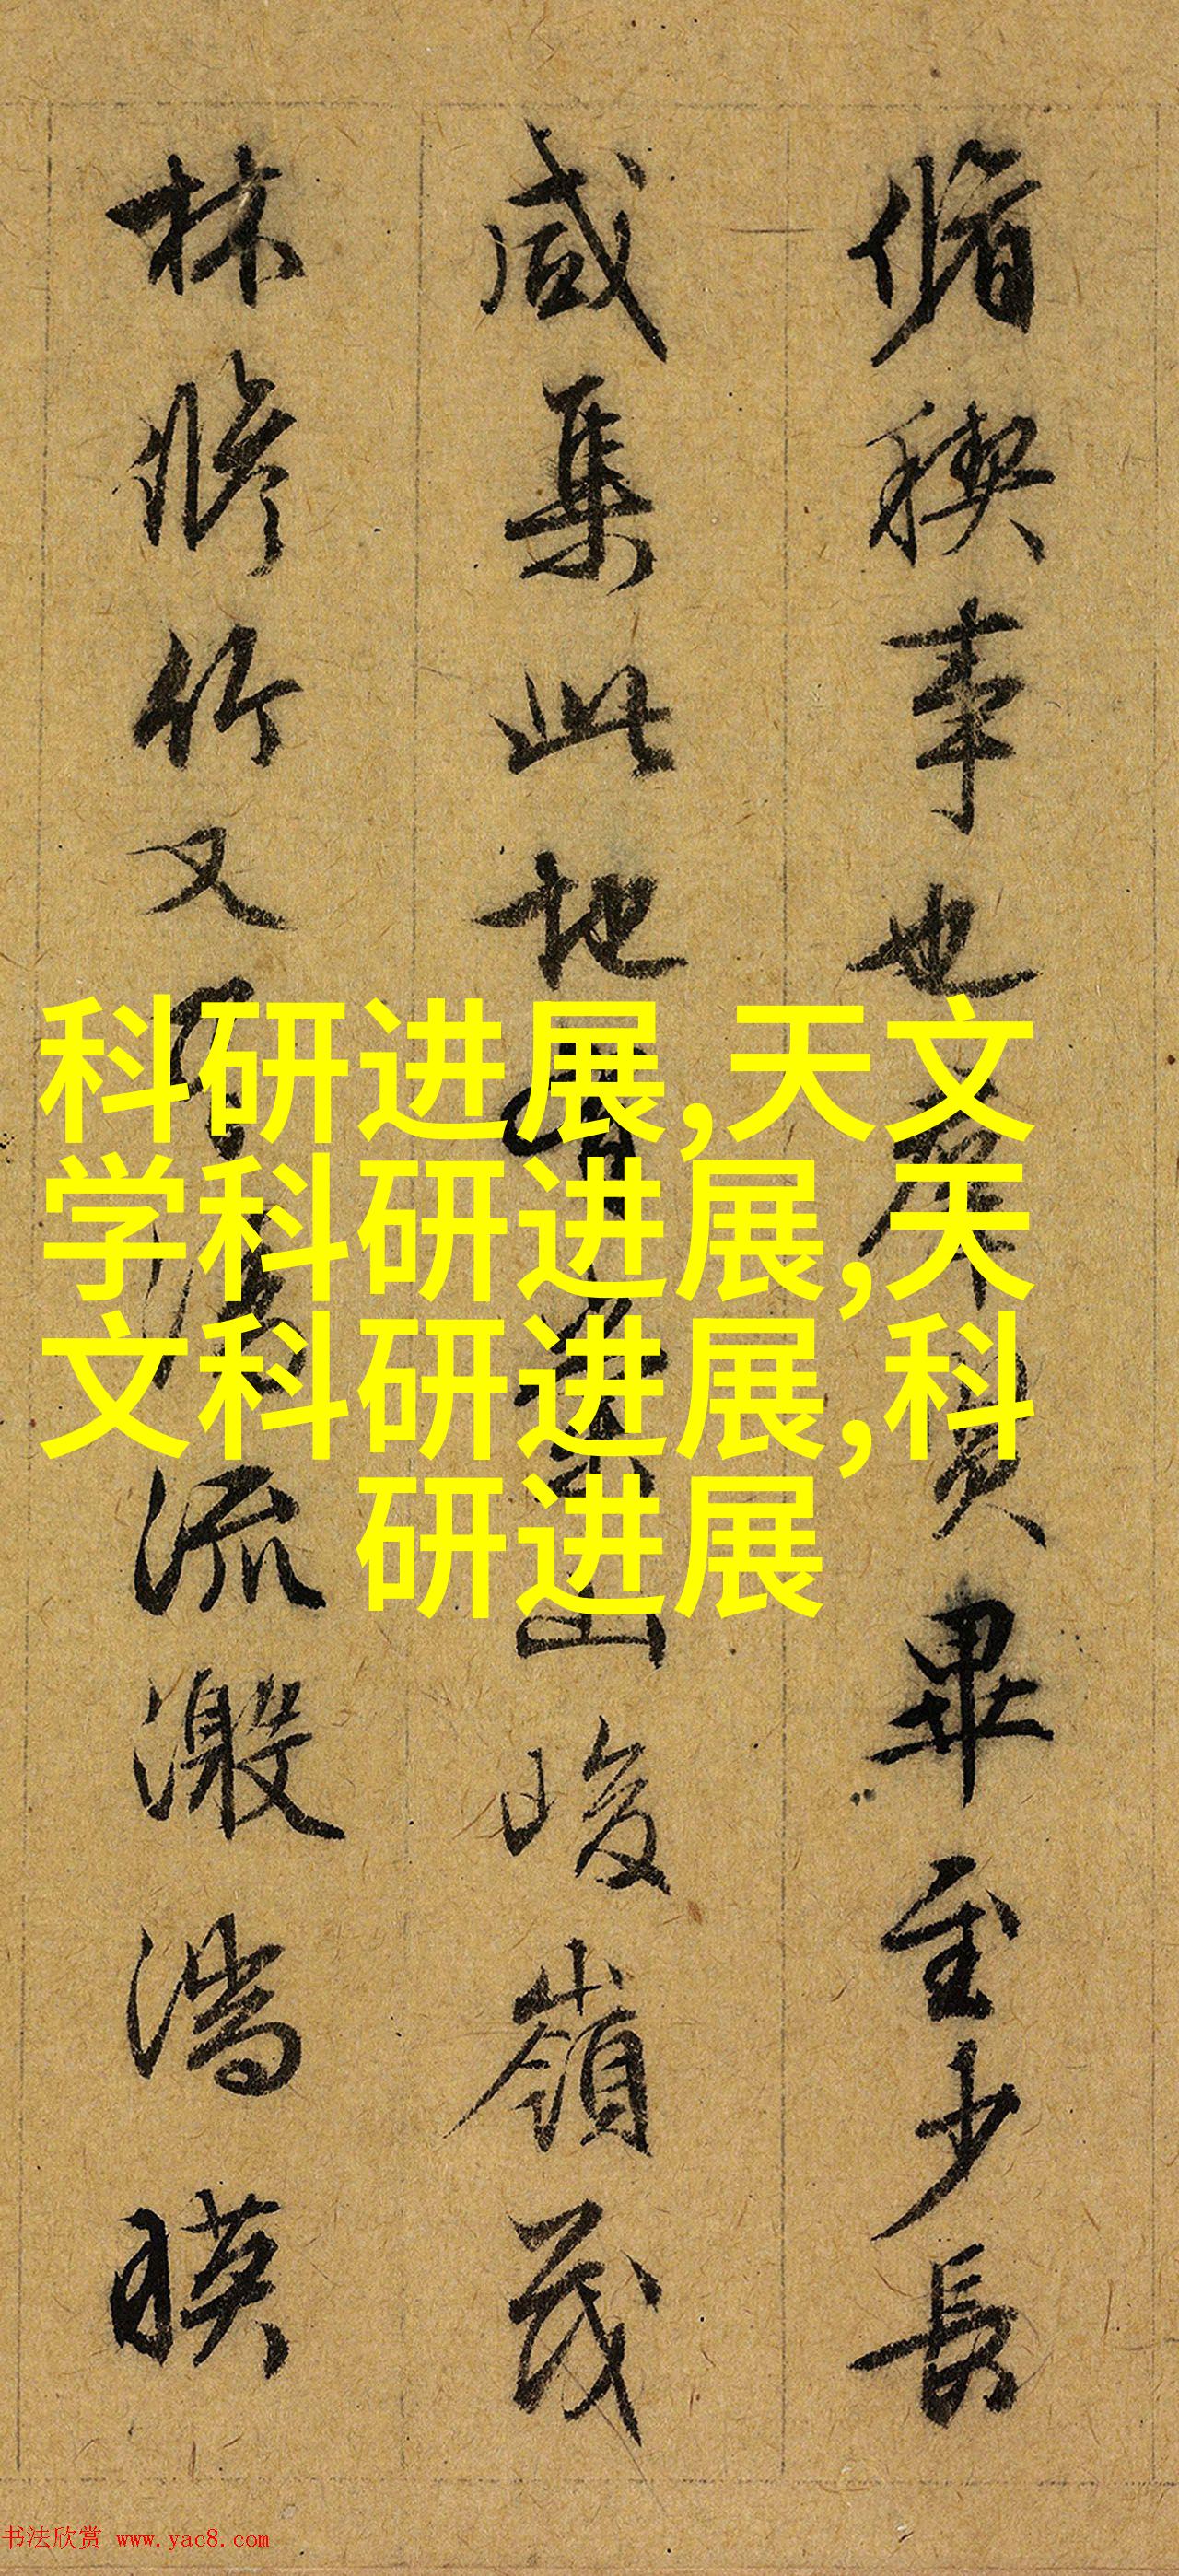 脩稧事也羣賢畢至少長
咸集此地有崇山峻嶺茂
林脩竹又有清流激湍暎
科研进展,天文
学科研进展,天
文科研进展,科
研进展
书法欣赏 www.yac8.com